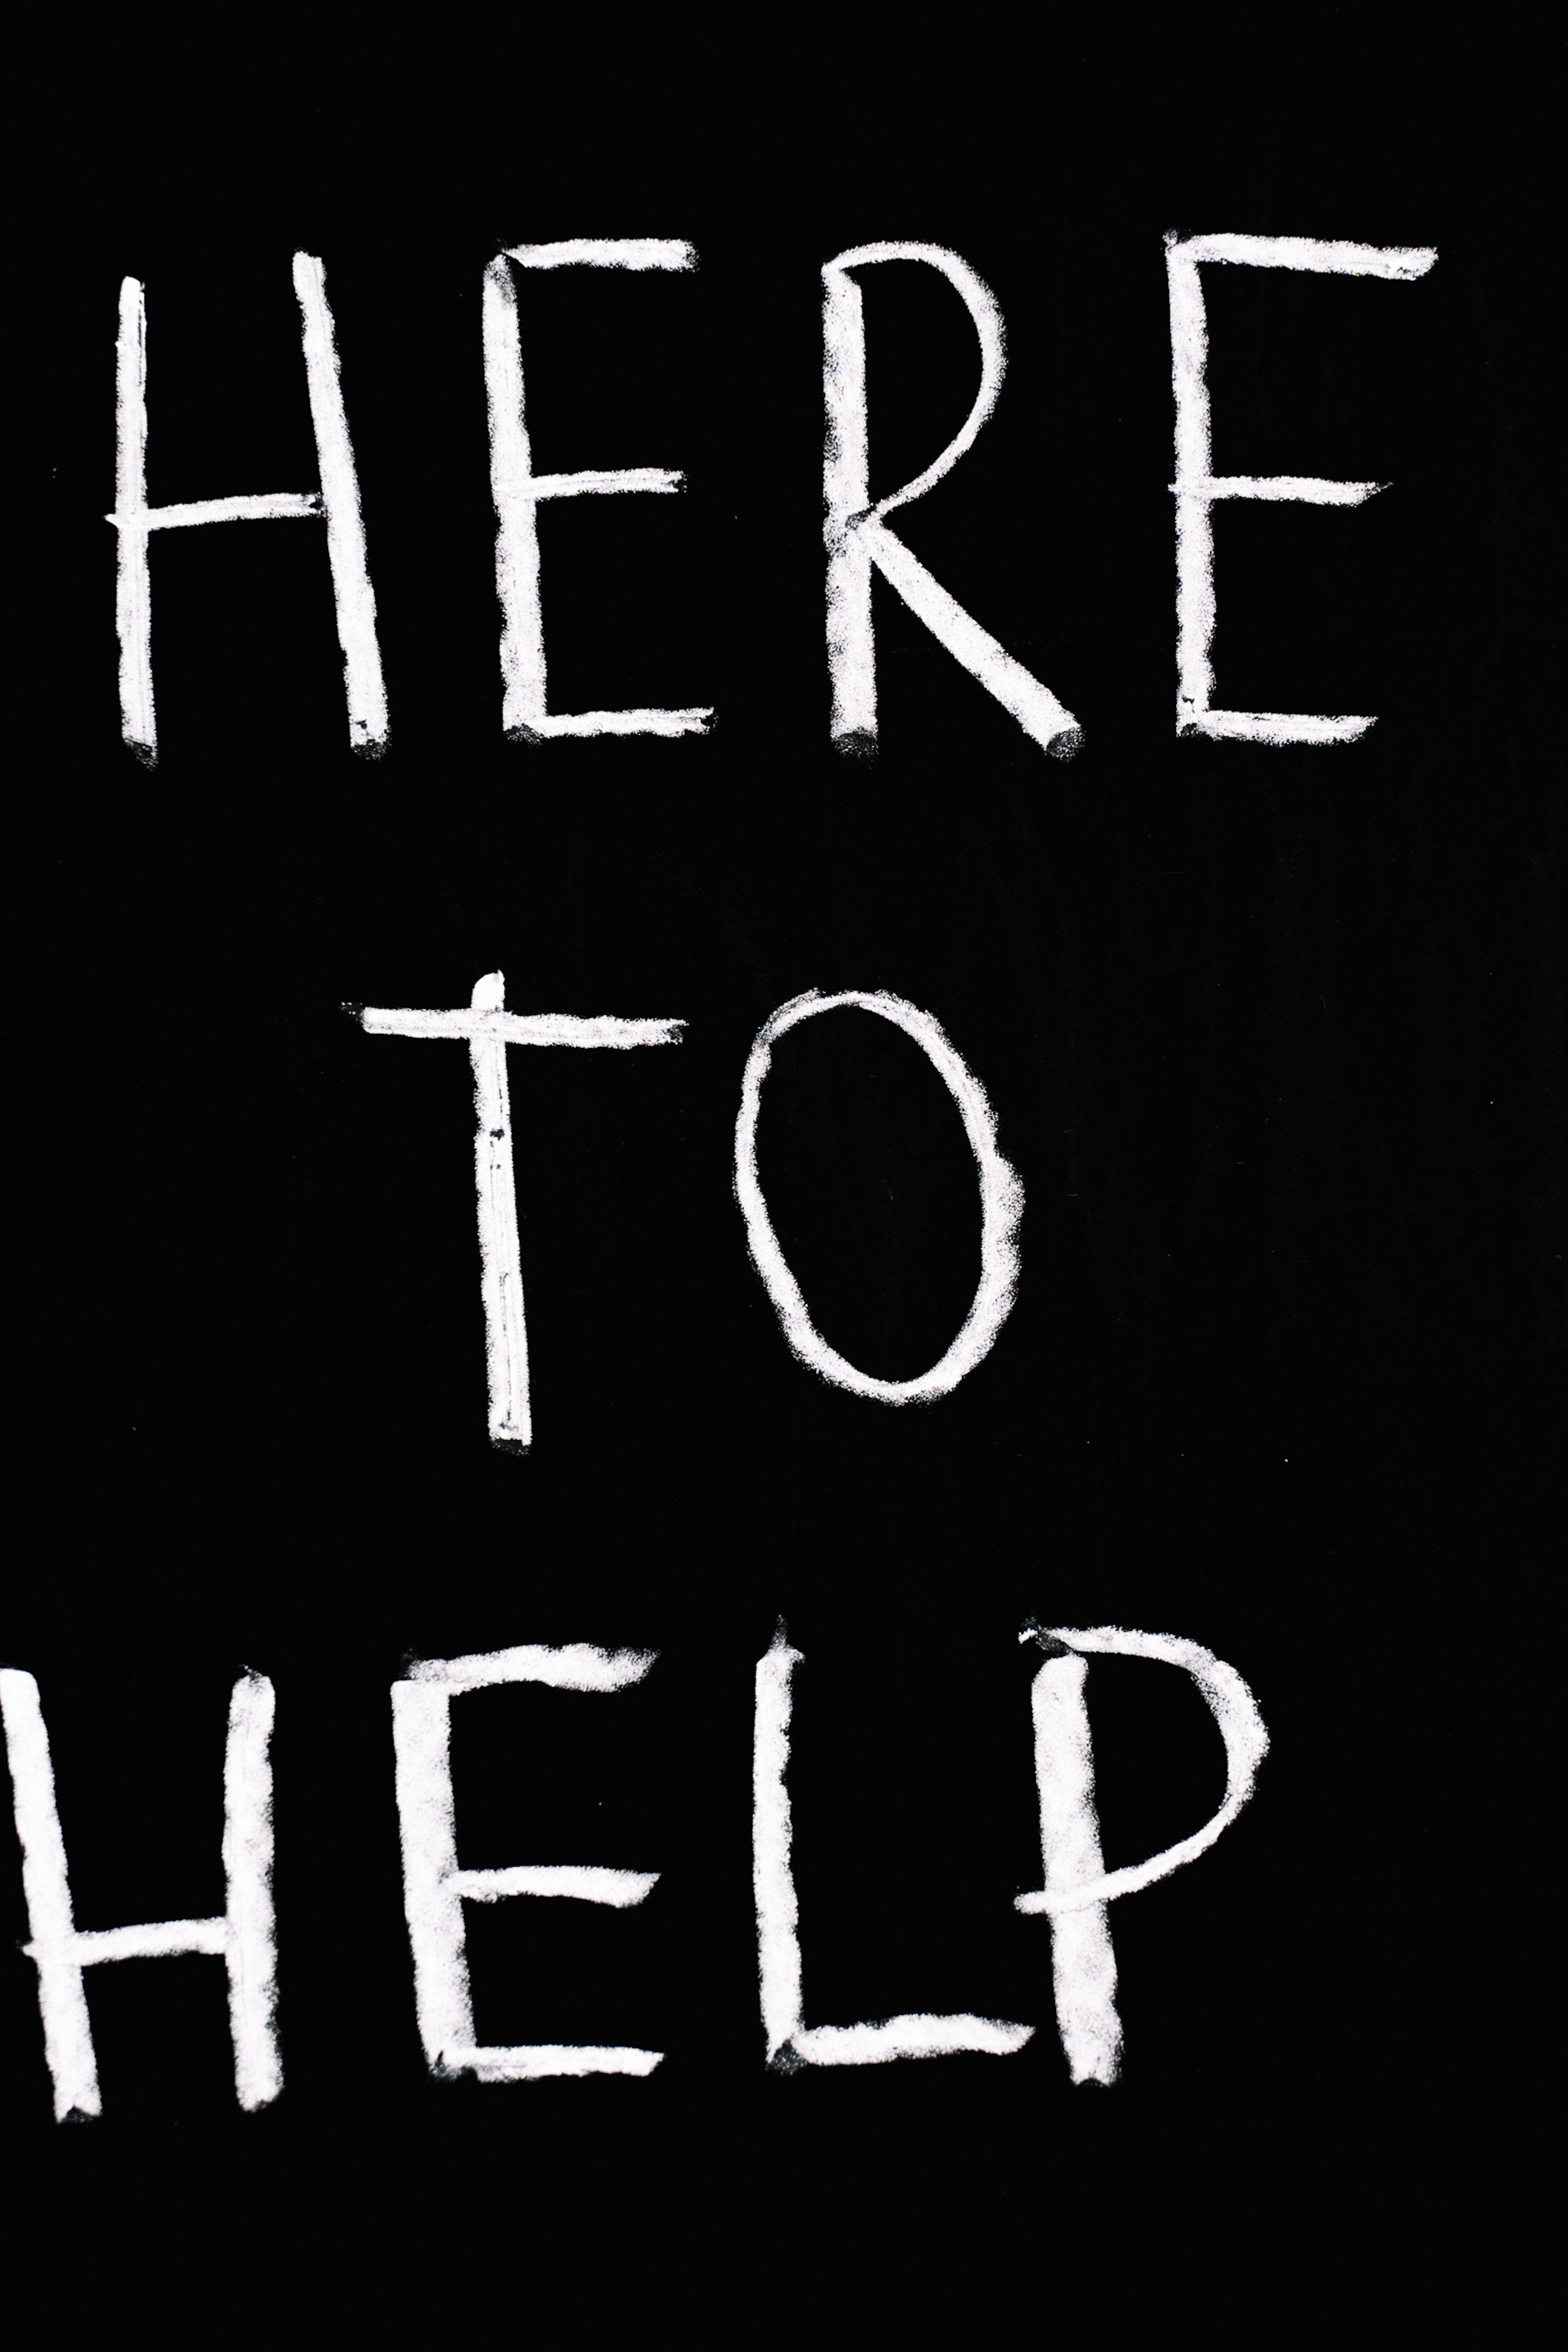 HERE
TO
HELP